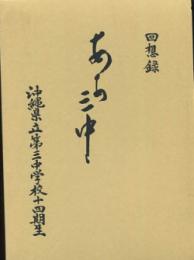 回想録
あゝ三中
沖縄県立第三中学校十四期生